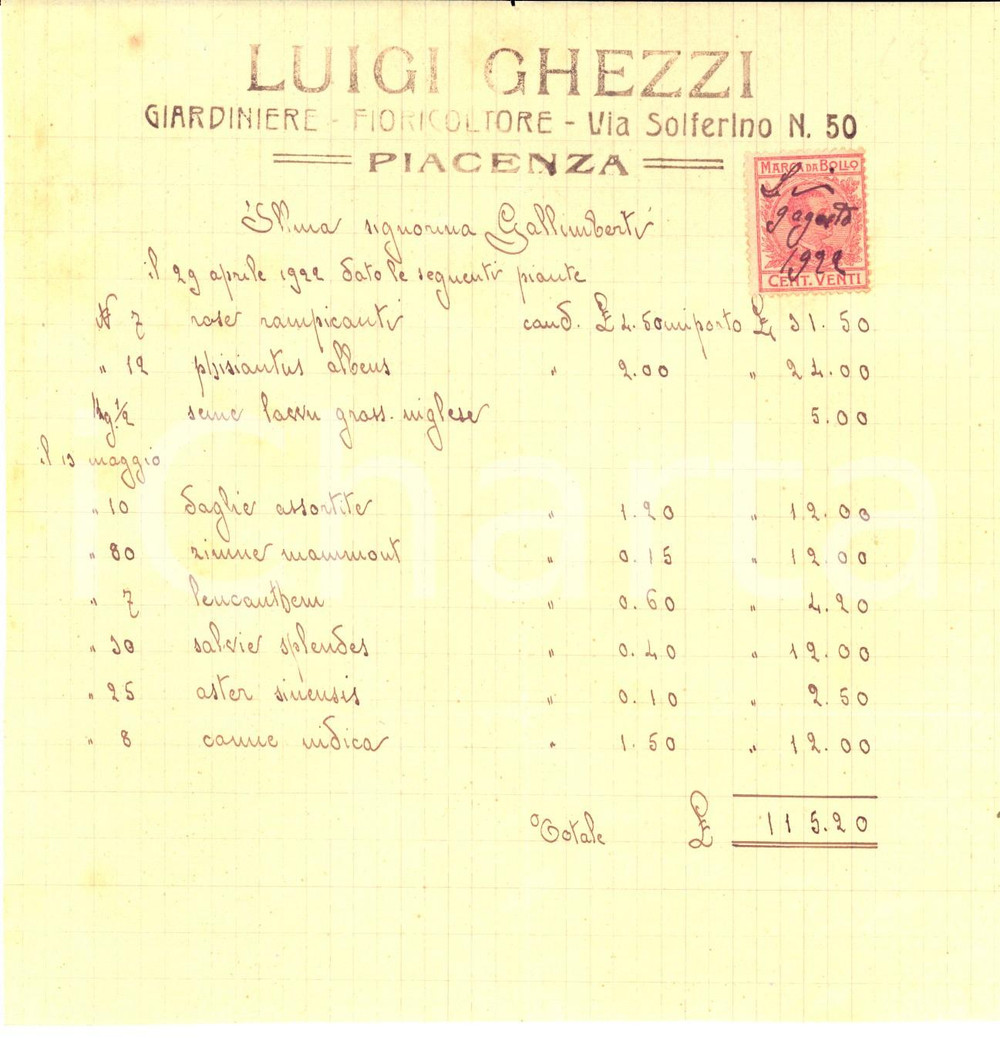 LUIGI GHEZZI
GIARDINIERE - FIORICOLTORE - Via Solferino N. 50
PIACENZA
MARCA DA BOLLO
9 agosto
1922
CENT. VENTI
Ill.ma signorina Gallimberti
il 29 aprile 1922 dato le seguenti piante
N 7 rose rampicanti cand. £ 4.50 importo £ 31.50
" 12 phisiantus albeus " 2.00 " 24.00
Kg. 1/2 seme lawn grass. inglese 5.00
il 13 maggio
" 10 daglie assortite " 1.20 " 12.00
" 80 zinnie mammont " 0.15 " 12.00
" 7 leucanthem " 0.60 " 4.20
" 30 salvie splendes " 0.40 " 12.00
" 25 aster sinensis " 0.10 " 2.50
" 8 canne indica " 1.50 " 12.00
Totale £ 115.20
iCharta